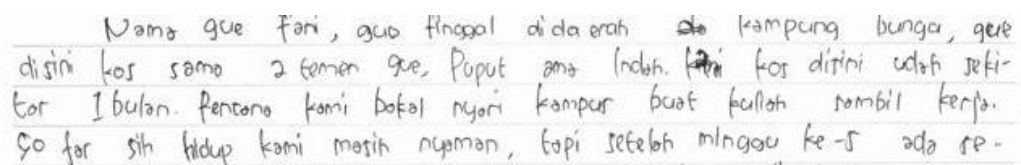 Nama gue Fani, gue tinggal di daerah kampung bunga, gue
disini kos sama 2 temen gue, Puput ama Indah. kos disini udah seki-
tar 1 bulan. Rencana kami bakal nyari kampus buat kuliah sambil kerja.
So far sih hidup kami masih nyaman, tapi setelah minggu ke-5 ada se-